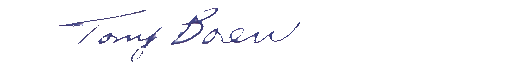 Tony Boen